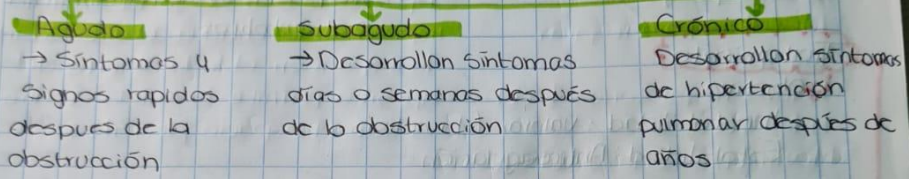 Agudo
→ Síntomas y
signos rapidos
despues de la
obstrucción
Subagudo
→ Desarrollan síntomas
días o semanas después
de la obstrucción
Crónico
Desarrollan síntomas
de hipertención
pulmonar despúes de
años